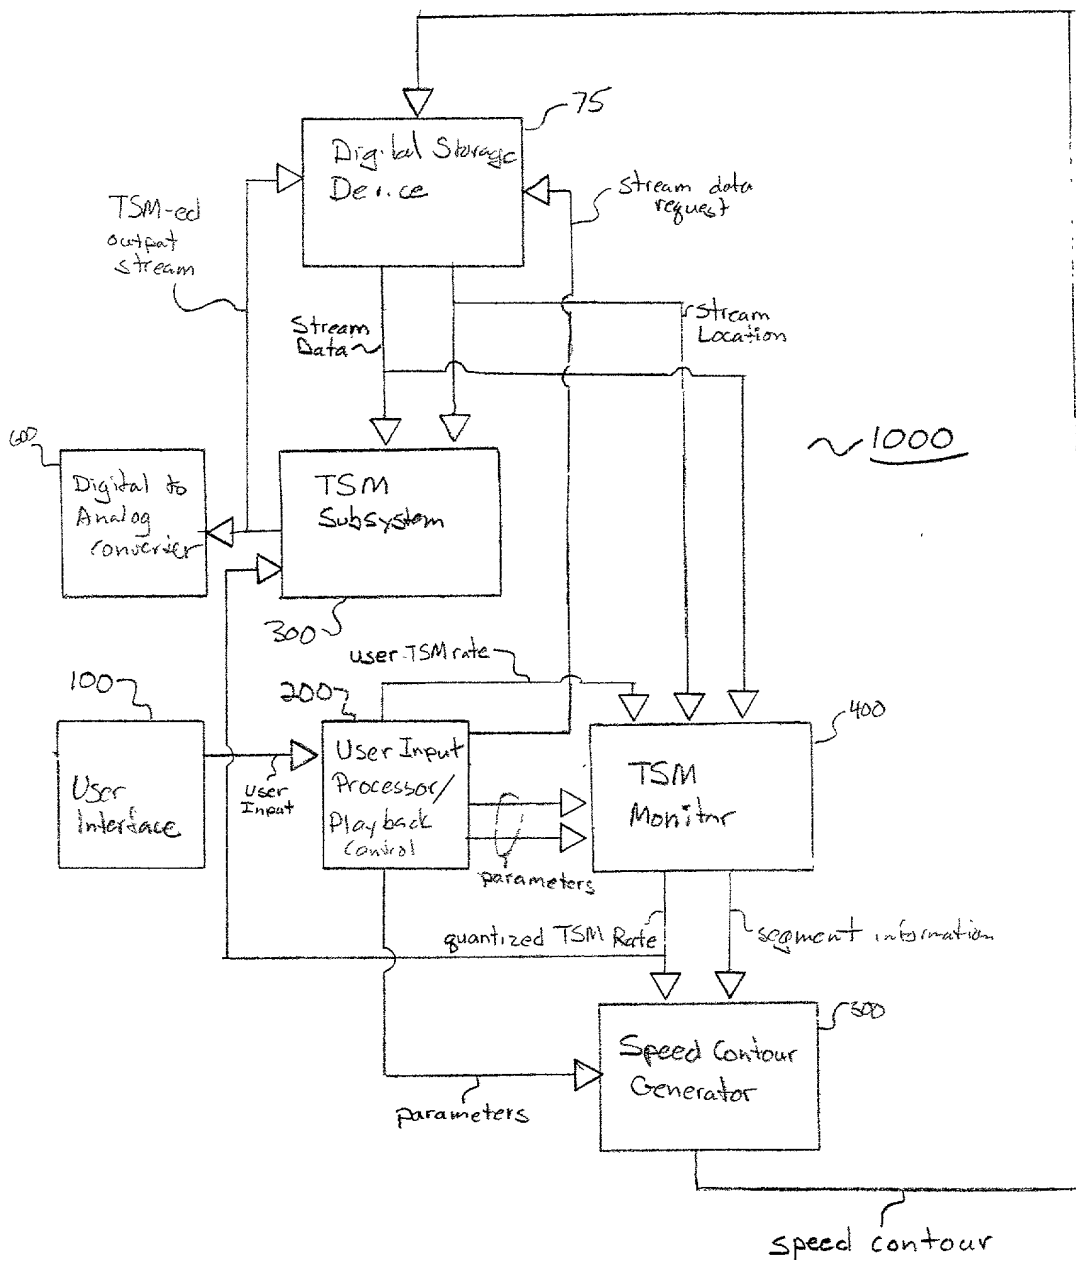 75
Digital Storage
Device
stream data
request
TSM-ed
output
stream
Stream
Data
Stream
Location
1000
600
Digital to
Analog
Converter
TSM
Subsystem
300
user TSM rate
100
200
400
User
Interface
User
Input
User Input
Processor/
Playback
Control
TSM
Monitor
parameters
quantized TSM Rate
segment information
500
Speed Contour
Generator
parameters
speed contour